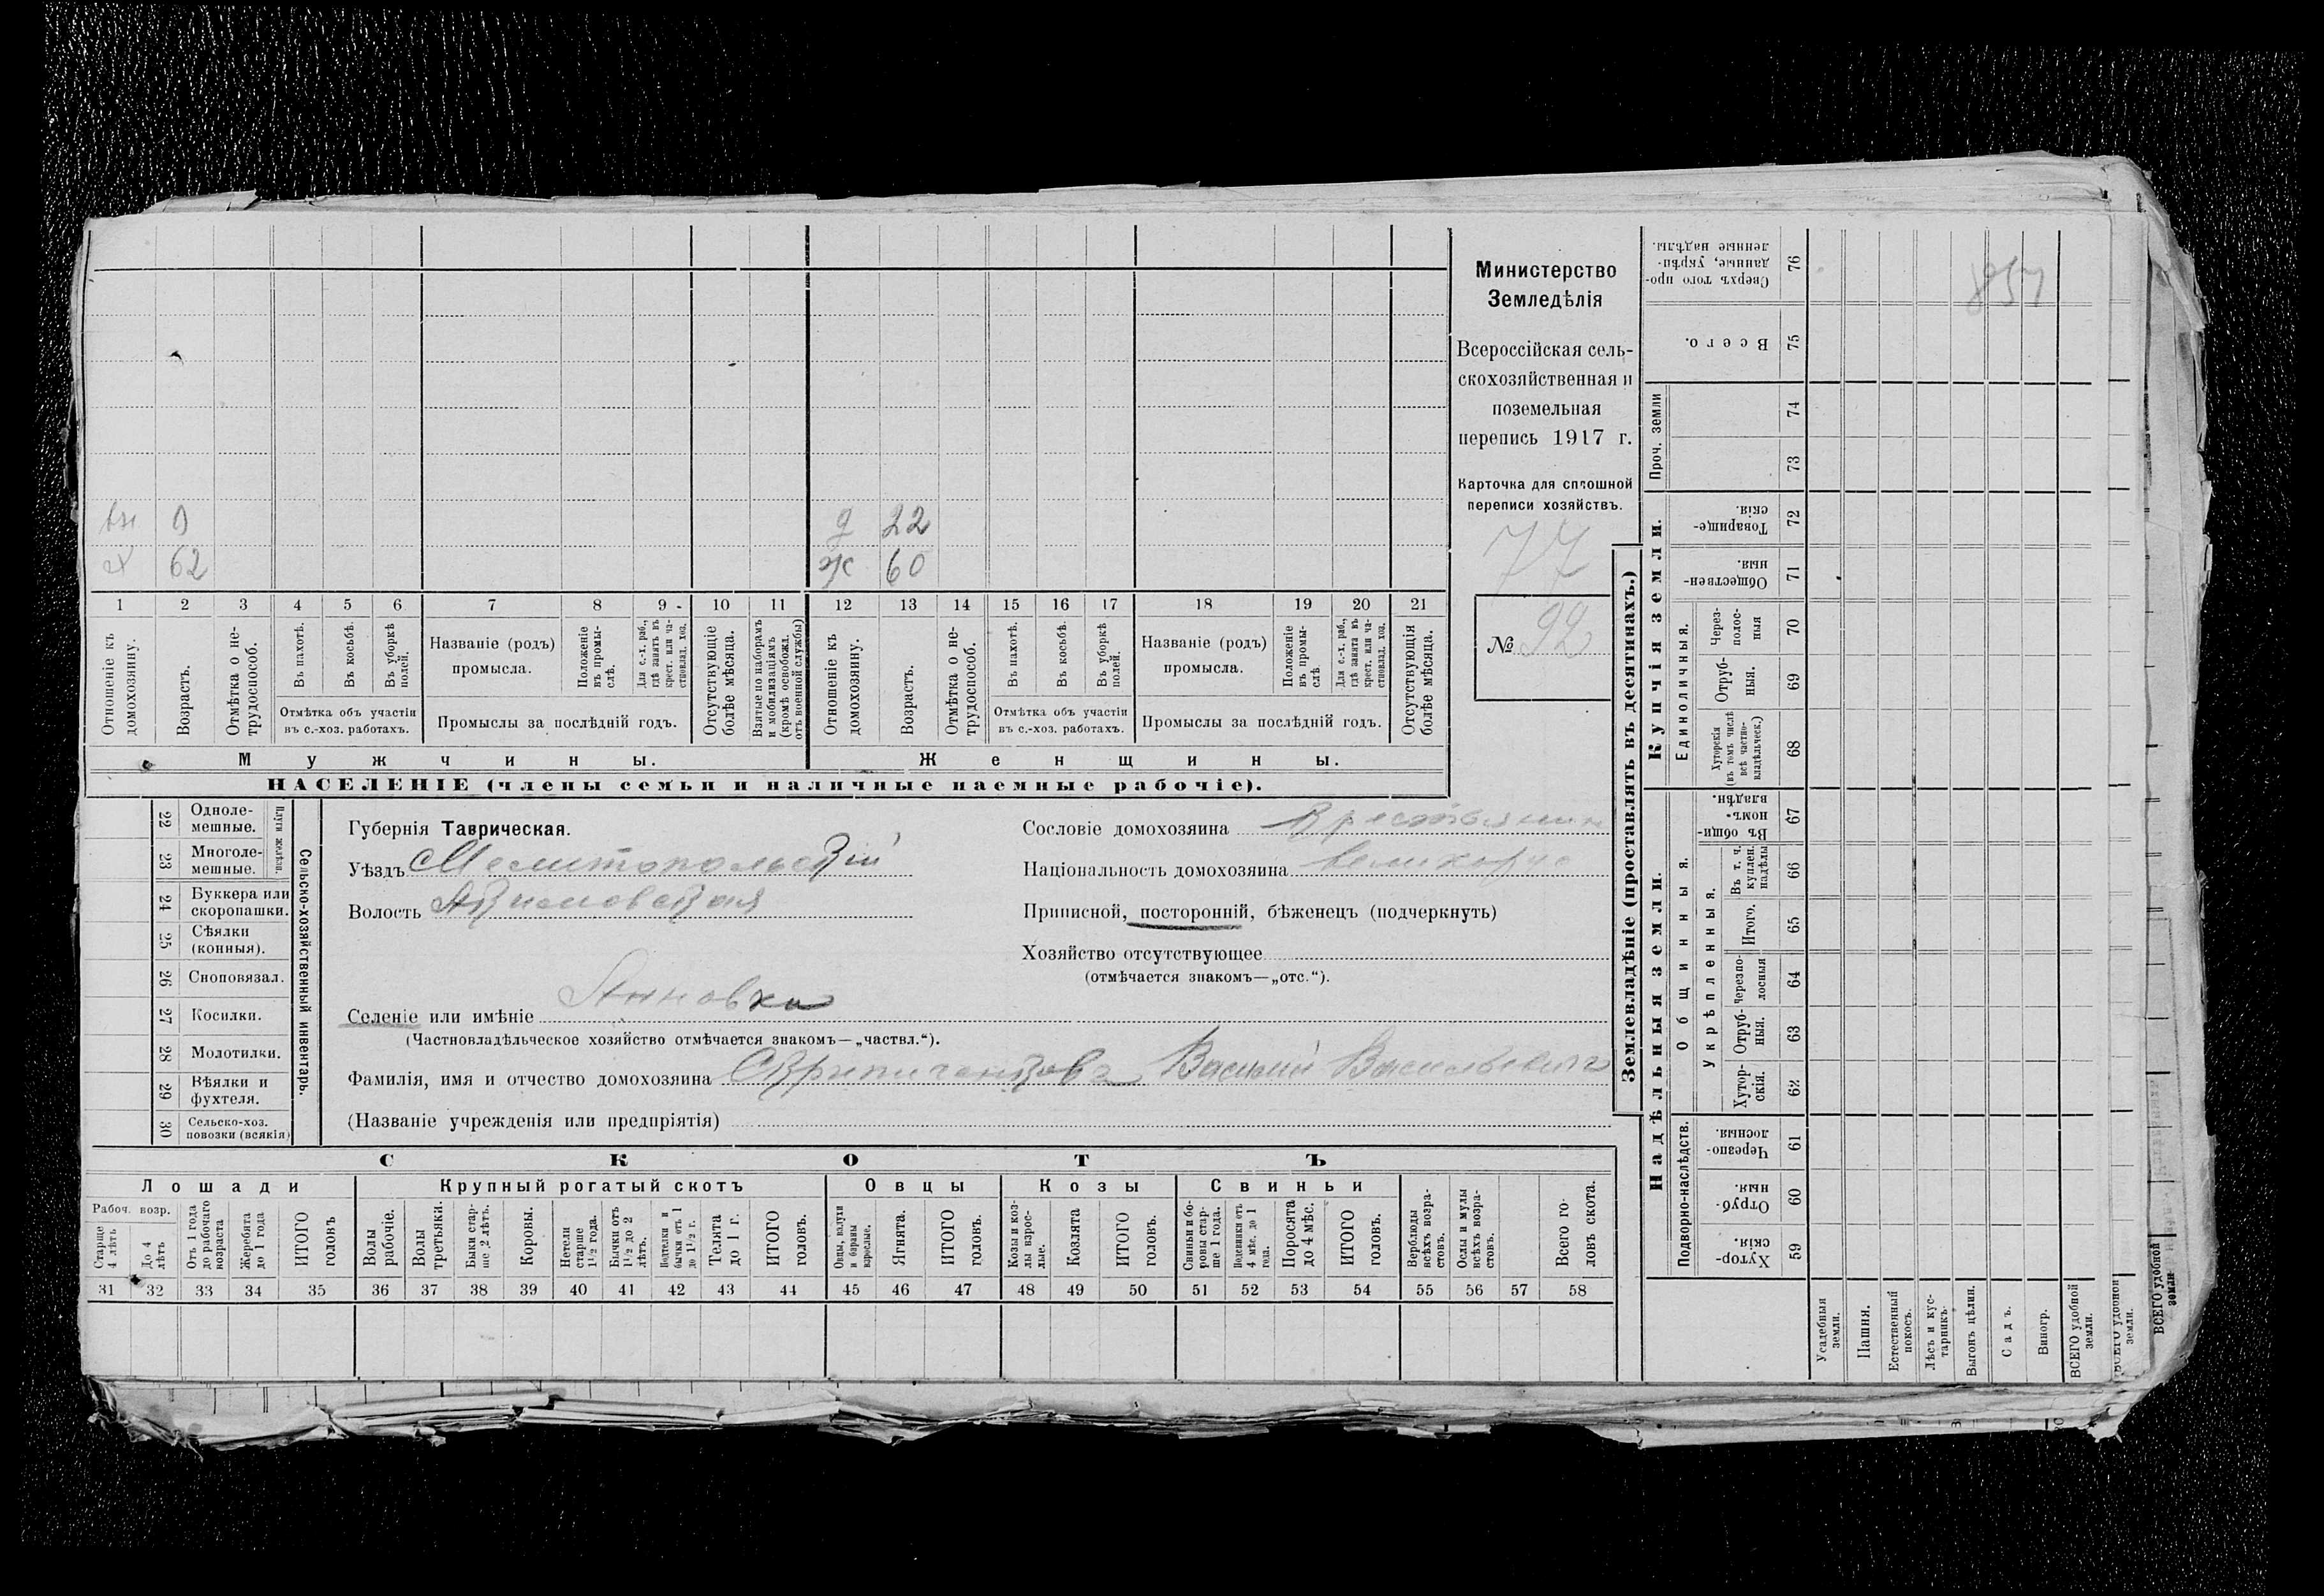 9
22
62
ж 60
1 2 3 4 5 6 7 8 9 10 11 12 13 14 15 16 17 18 19 20 21
Отношеніе къ домохозяину.
Возрастъ.
Отмѣтка о не-
трудоспособ.
Въ пахотѣ.
Въ косьбѣ.
Въ уборкѣ
полей.
Отмѣтка объ участіи
въ с.-хоз. работахъ.
Названіе (родъ)
промысла.
Положеніе
въ промы-
слѣ.
Для с.-х. раб.,
гдѣ занятъ въ
крест. или ча-
стновлад. хоз.
Промыслы за послѣдній годъ.
Отсутствующіе
болѣе мѣсяца.
Взятые по наборамъ
и мобилизаціямъ
(кромѣ освобожд.
отъ военной службы)
Отношеніе къ
домохозяину.
Возрастъ.
Отмѣтка о не-
трудоспособ.
Въ пахотѣ.
Въ косьбѣ.
Въ уборкѣ
полей.
Отмѣтка объ участіи
въ с.-хоз. работахъ.
Названіе (родъ)
промысла.
Положеніе
въ промы-
слѣ
Для с.-х. раб.,
гдѣ занята въ
крест. или ча-
стновлад. хоз.
Промыслы за послѣдній годъ.
Отсутствующія
болѣе мѣсяца.
Мужчины.
Женщины.
НАСЕЛЕНІЕ (члены семьи и наличные наемные рабочіе).
Министерство
Земледѣлія
Всероссійская сель-
скохозяйственная и
поземельная
перепись 1917 г.
Карточка для сплошной
переписи хозяйствъ.
77
№ 92
22 Одноле-
мешные.
23 Многоле-
мешные.
Плуги желѣзн.
24 Буккера или
скоропашки.
25 Сѣялки
(конныя).
26 Сноповязал.
27 Косилки.
28 Молотилки.
29 Вѣялки и
фухтеля.
30 Сельско-хоз.
повозки (всякія)
Сельско-хозяйственный инвентарь.
Губернія Таврическая.
Уѣздъ Мелитопольскій
Волость Акимовская
Селеніе или имѣніе Анновка
(Частновладѣльческое хозяйство отмѣчается знакомъ—„частвл.“).
Фамилія, имя и отчество домохозяина Василій Васильевичъ
(Названіе учрежденія или предпріятія)
Сословіе домохозяина Крестьянин
Національность домохозяина великорус
Приписной, посторонній, бѣженецъ (подчеркнуть)
Хозяйство отсутствующее
(отмѣчается знакомъ—„отс.“).
СКОТЪ
Лошади
Крупный рогатый скотъ
Овцы
Козы
Свиньи
Рабоч. возр.
Старше
4 лѣтъ
До 4
лѣтъ
Отъ 1 года
до рабочаго
возраста
Жеребята
до 1 года
ИТОГО
головъ
Волы
рабочіе.
Волы
третьяки.
Быки стар-
ше 2 лѣтъ.
Коровы.
Нетели
старше
1½ года.
Бычки отъ
1½ до 2
лѣтъ.
Подтелки и
бычки отъ 1
до 1½ г.
Телята
до 1 г.
ИТОГО
головъ.
Овцы, валухи
и бараны
взрослые.
Ягнята.
ИТОГО
головъ.
Козы и коз-
лы взрос-
лые.
Козлята
ИТОГО
головъ.
Свиньи и бо-
ровы стар-
ше 1 года.
Подсвинки отъ
4 мѣс. до 1
года.
Поросята
до 4 мѣс.
ИТОГО
головъ.
Верблюды
всѣхъ возра-
стовъ.
Ослы и мулы
всѣхъ возра-
стовъ.
Всего го-
ловъ скота.
31 32 33 34 35 36 37 38 39 40 41 42 43 44 45 46 47 48 49 50 51 52 53 54 55 56 57 58
Землевладѣніе (проставлять въ десятинахъ.)
Купчія земли.
Надѣльныя земли.
76 Сверхъ того про-
данные, укрѣп-
ленные надѣлы.
75 Всего.
Проч. земли
74
73
72 Товарище-
скія.
71 Обществен-
ныя.
Единоличныя.
70 Через-
полос-
ныя
69 Отруб-
ныя.
68 Хуторскія
(въ томъ числѣ
всѣ частно-
владѣльческ.)
Общинныя.
67 Въ общи-
номъ-
владѣн.
Укрѣпленныя.
66 Въ т. ч.
куплен.
надѣлы
65 Итого.
64 Черезпо-
лосныя
63 Отруб-
ныя.
62 Хутор-
скія.
Подворно-наслѣдств.
61 Черезпо-
лосныя.
60 Отруб-
ныя.
59 Хутор-
скія.
Усадебныя
земли.
Пашня.
Естественный
покосъ.
Лѣсъ и кус-
тарникъ.
Выгонъ цѣлин.
Садъ.
Виногр.
ВСЕГО удобной
земли.
ВСЕГО удобной
земли.
ВСЕГО удобной
земли